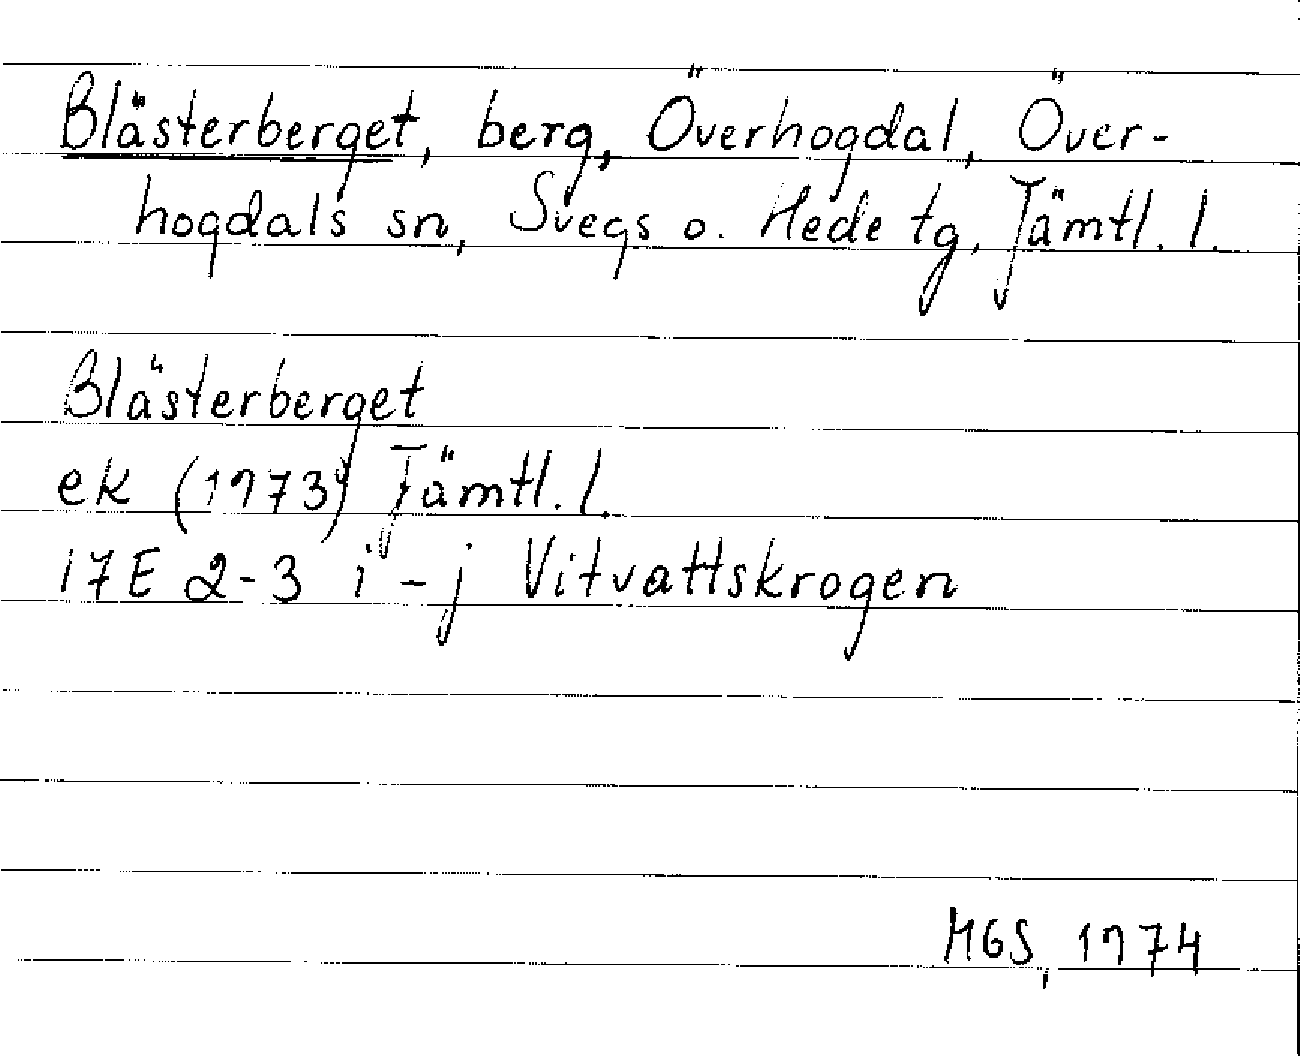 Blästerberget, berg, Överhogdal, Över-
hogdals sn, Svegs o. Hede tg, Jämtl. l.
Blästerberget
ek (1973) Jämtl. l.
17E 2-3 i-j Vitvattskrogen
MGS, 1974